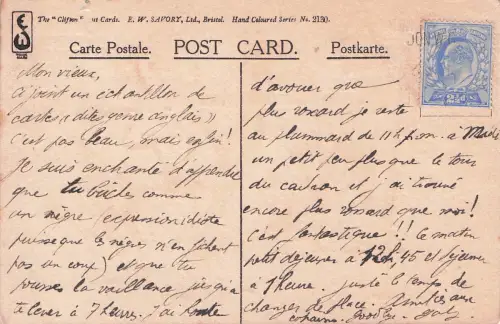 The "Clifton" Post Cards. E. W. SAVORY, Ltd., Bristol. Hand Coloured Series No. 2130.
Carte Postale. POST CARD. Postkarte.
Mon vieux,
ci joint un échantillon de
cartes « dites genre anglais »
C'est pas beau, mais enfin!
Je suis enchanté d'apprendre
que tu bûches comme
un nègre (expression idiote
puisque les nègres n'en fichent
pas un coup) et que tu
pousses la vaillance jusqu'à
te lever à 7 heures. J'ai honte
d'avouer que
plus conard je reste
au plummard de 11h p.m. à Midi
un petit peu plus que le tour
du cadran et j'ai trouvé
encore plus ronard que moi!
C'est fantastique!! le matin
petit déjeuner à 12h,45 et déjeuner
à 1 heure. juste le temps de
changer de place. Amitiés aux
copains. Goodbye